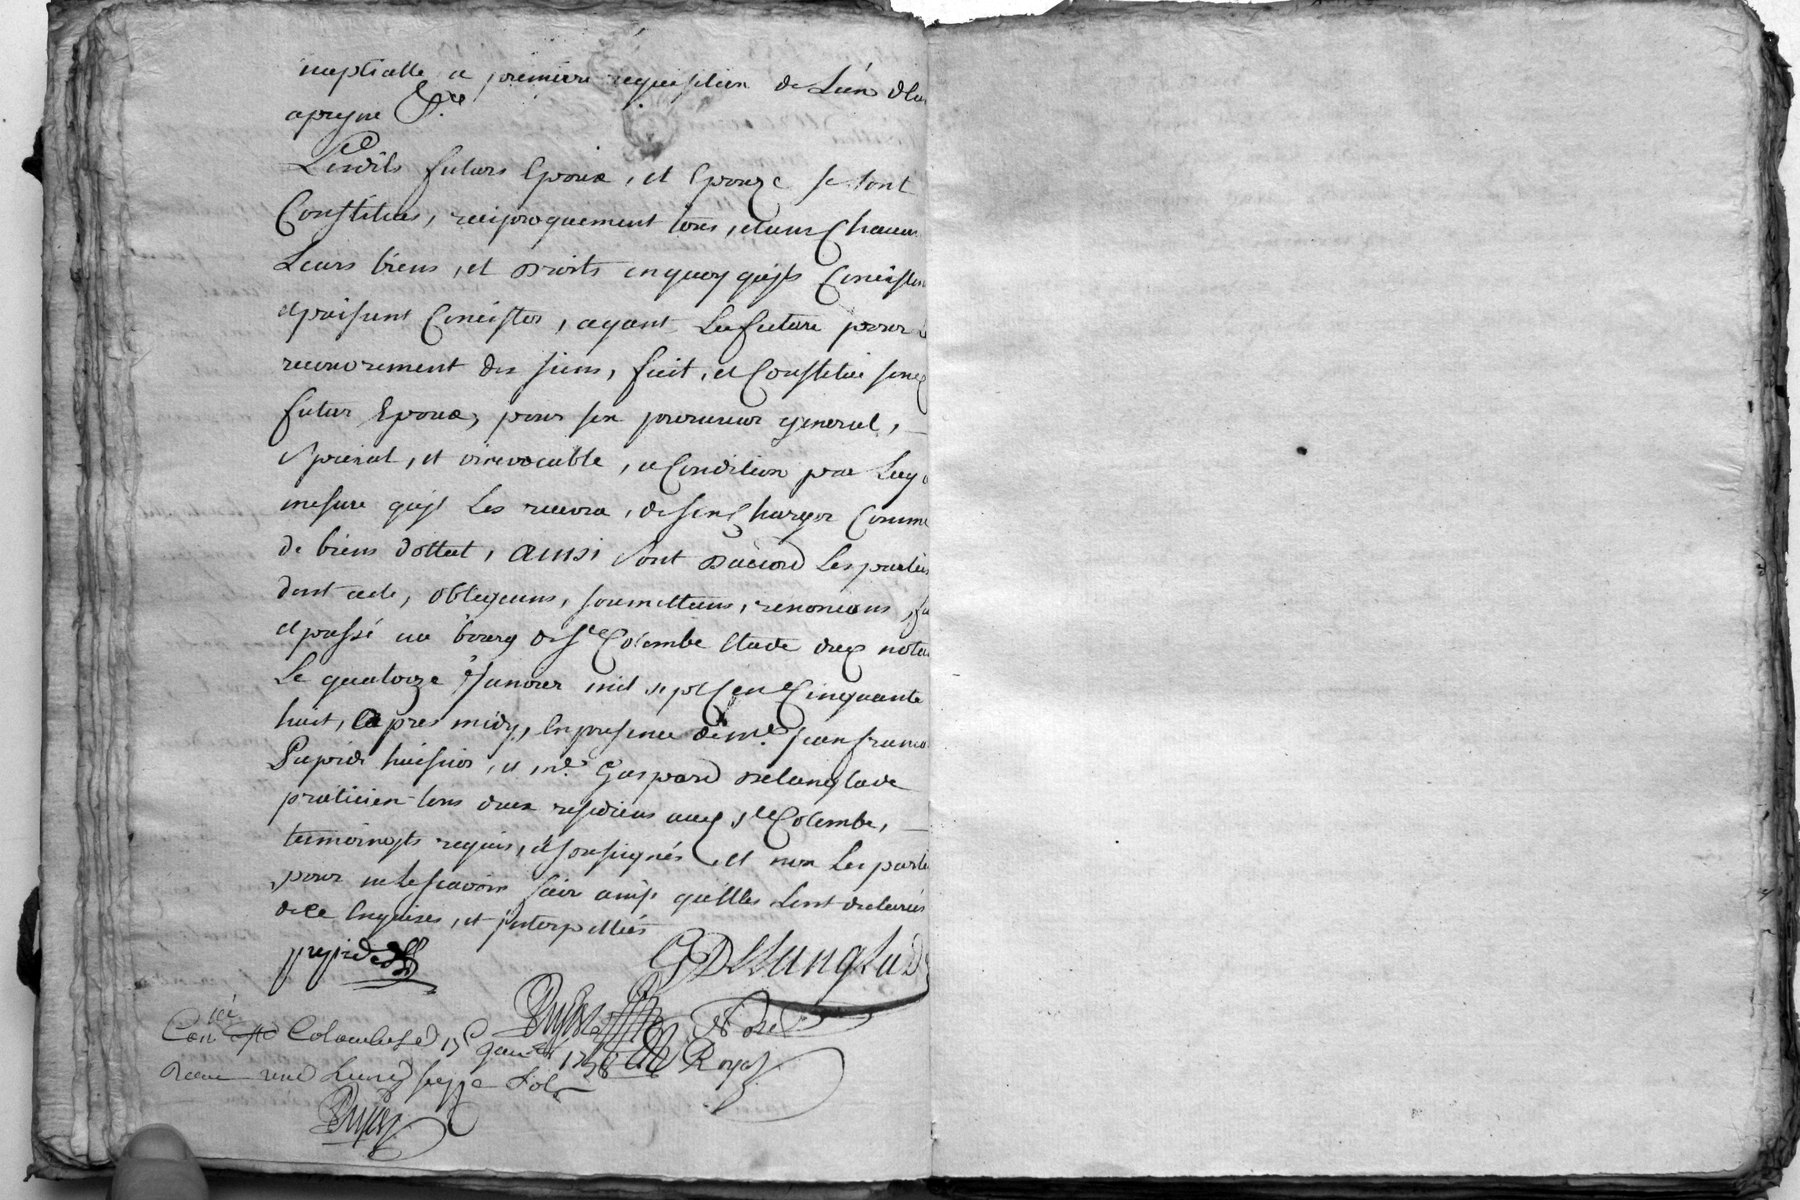 nuptialle a premiere requisition de Lun d'
a peyne &.ce
Lesdits futurs Epoux, et Epouze se sont
Constitués, reciproquement tous, et uns Chacun
Leurs biens, et Droits en quoy qu'ils Concisten
et puissent Concister, ayant La future pour
recouvrement des siens, fait, et Constitué
futur Epoux, pour son procureur general,
special, et irrevocable, a Condition par Luy
mesure qu'jl Les recevra, de s'en Charger Comme
de biens dottal, ainsi sont D'acord Les parties
dont acte, obligeans, soumettans, renoncans,
et passé au bourg de Ste Colombe
Le quatorze Janvier mil sept Cens Cinquante
huit, apres midy, En presence de me. jean francois
huissier, et me. Gaspard Delanglade
praticien tous deux residens audt Ste Colombe,
temoingts requis, et soussignés, et non Les parties
pour ne scavoir fair ainsi qu'Elles sont declarées
de ce Enquises, et jnterpellées
G Delanglad
Nore
Royal
Con Ste Colombe Le 15e janer 1758
Receu sols